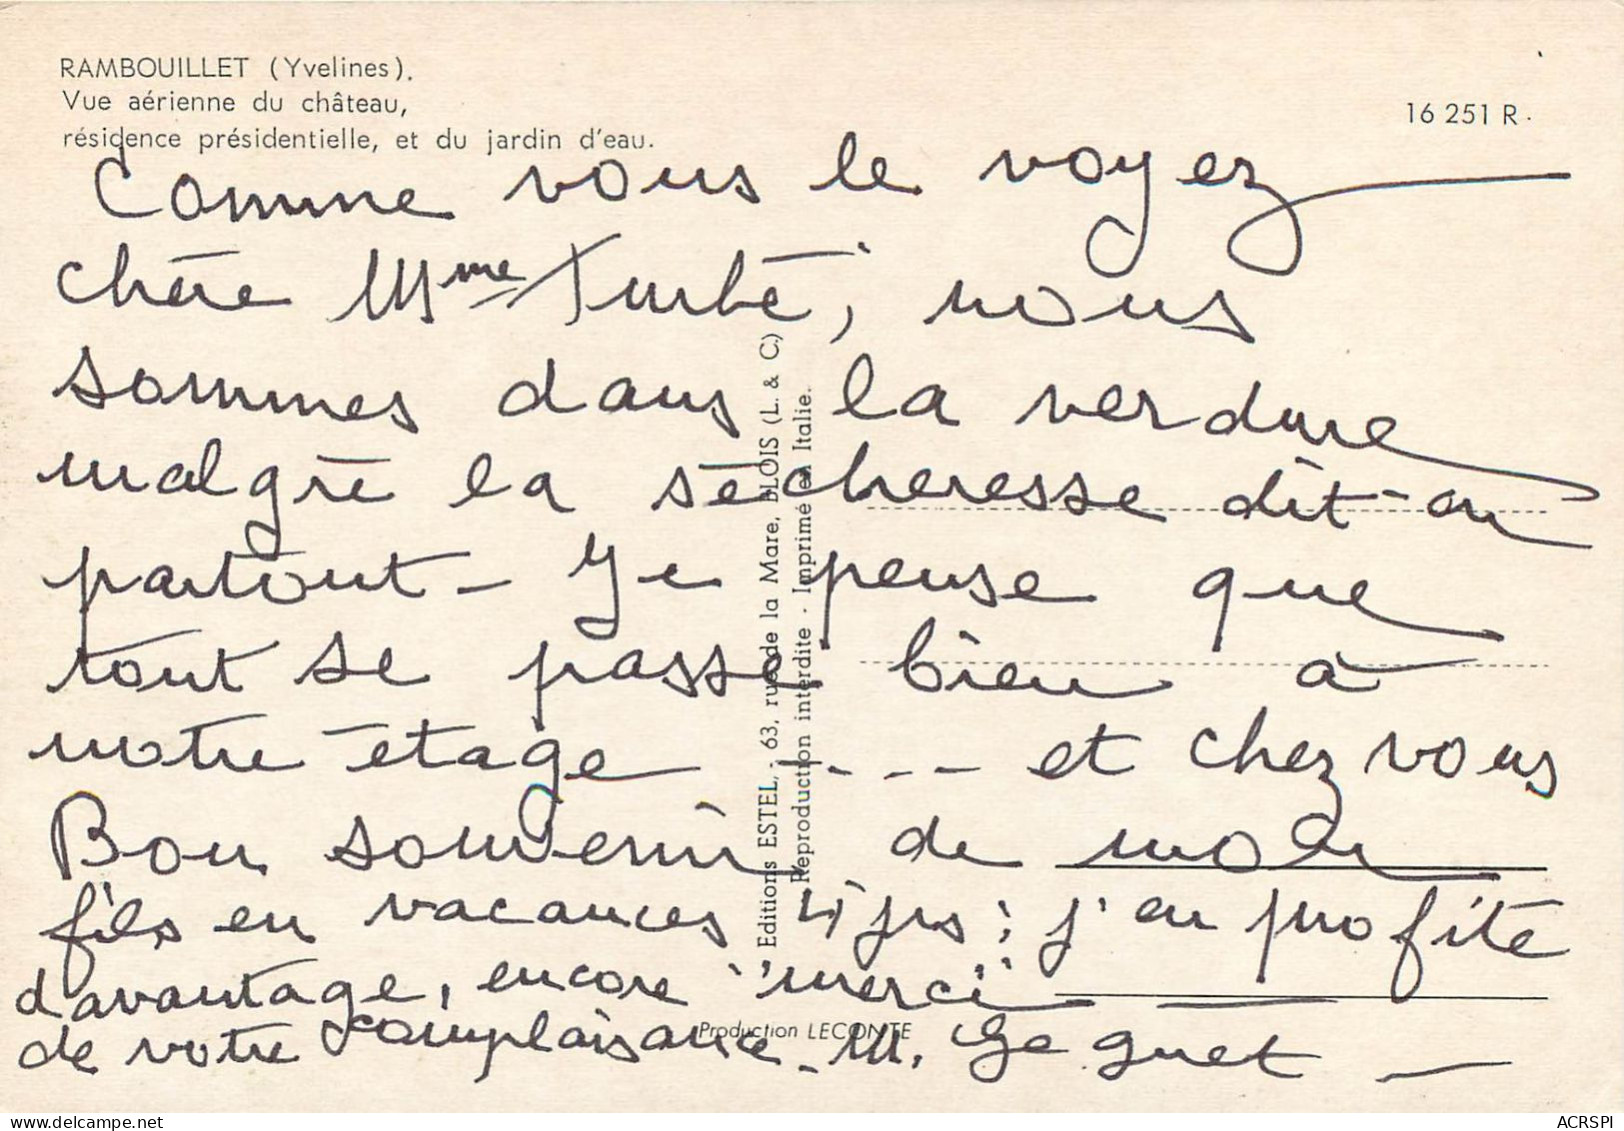 RAMBOUILLET (Yvelines).
Vue aérienne du château,
résidence présidentielle, et du jardin d'eau.
16 251 R
Comme vous le voyez
chère Mme Turbé, nous
sommes dans la verdure
malgré la sécheresse dit-on
partout - Je pense que
tout se passe bien à
notre étage - - - - et chez vous
Bon souvenir de
fils en vacances 4 jrs ; j'en profite
davantage, encore "merci"
de votre complaisance - M.
Editions ESTEL, - 63, rue de la Mare, BLOIS (L. & C.)
Reproduction interdite - Imprimé en Italie.
Production LECONTE
ACRSPI